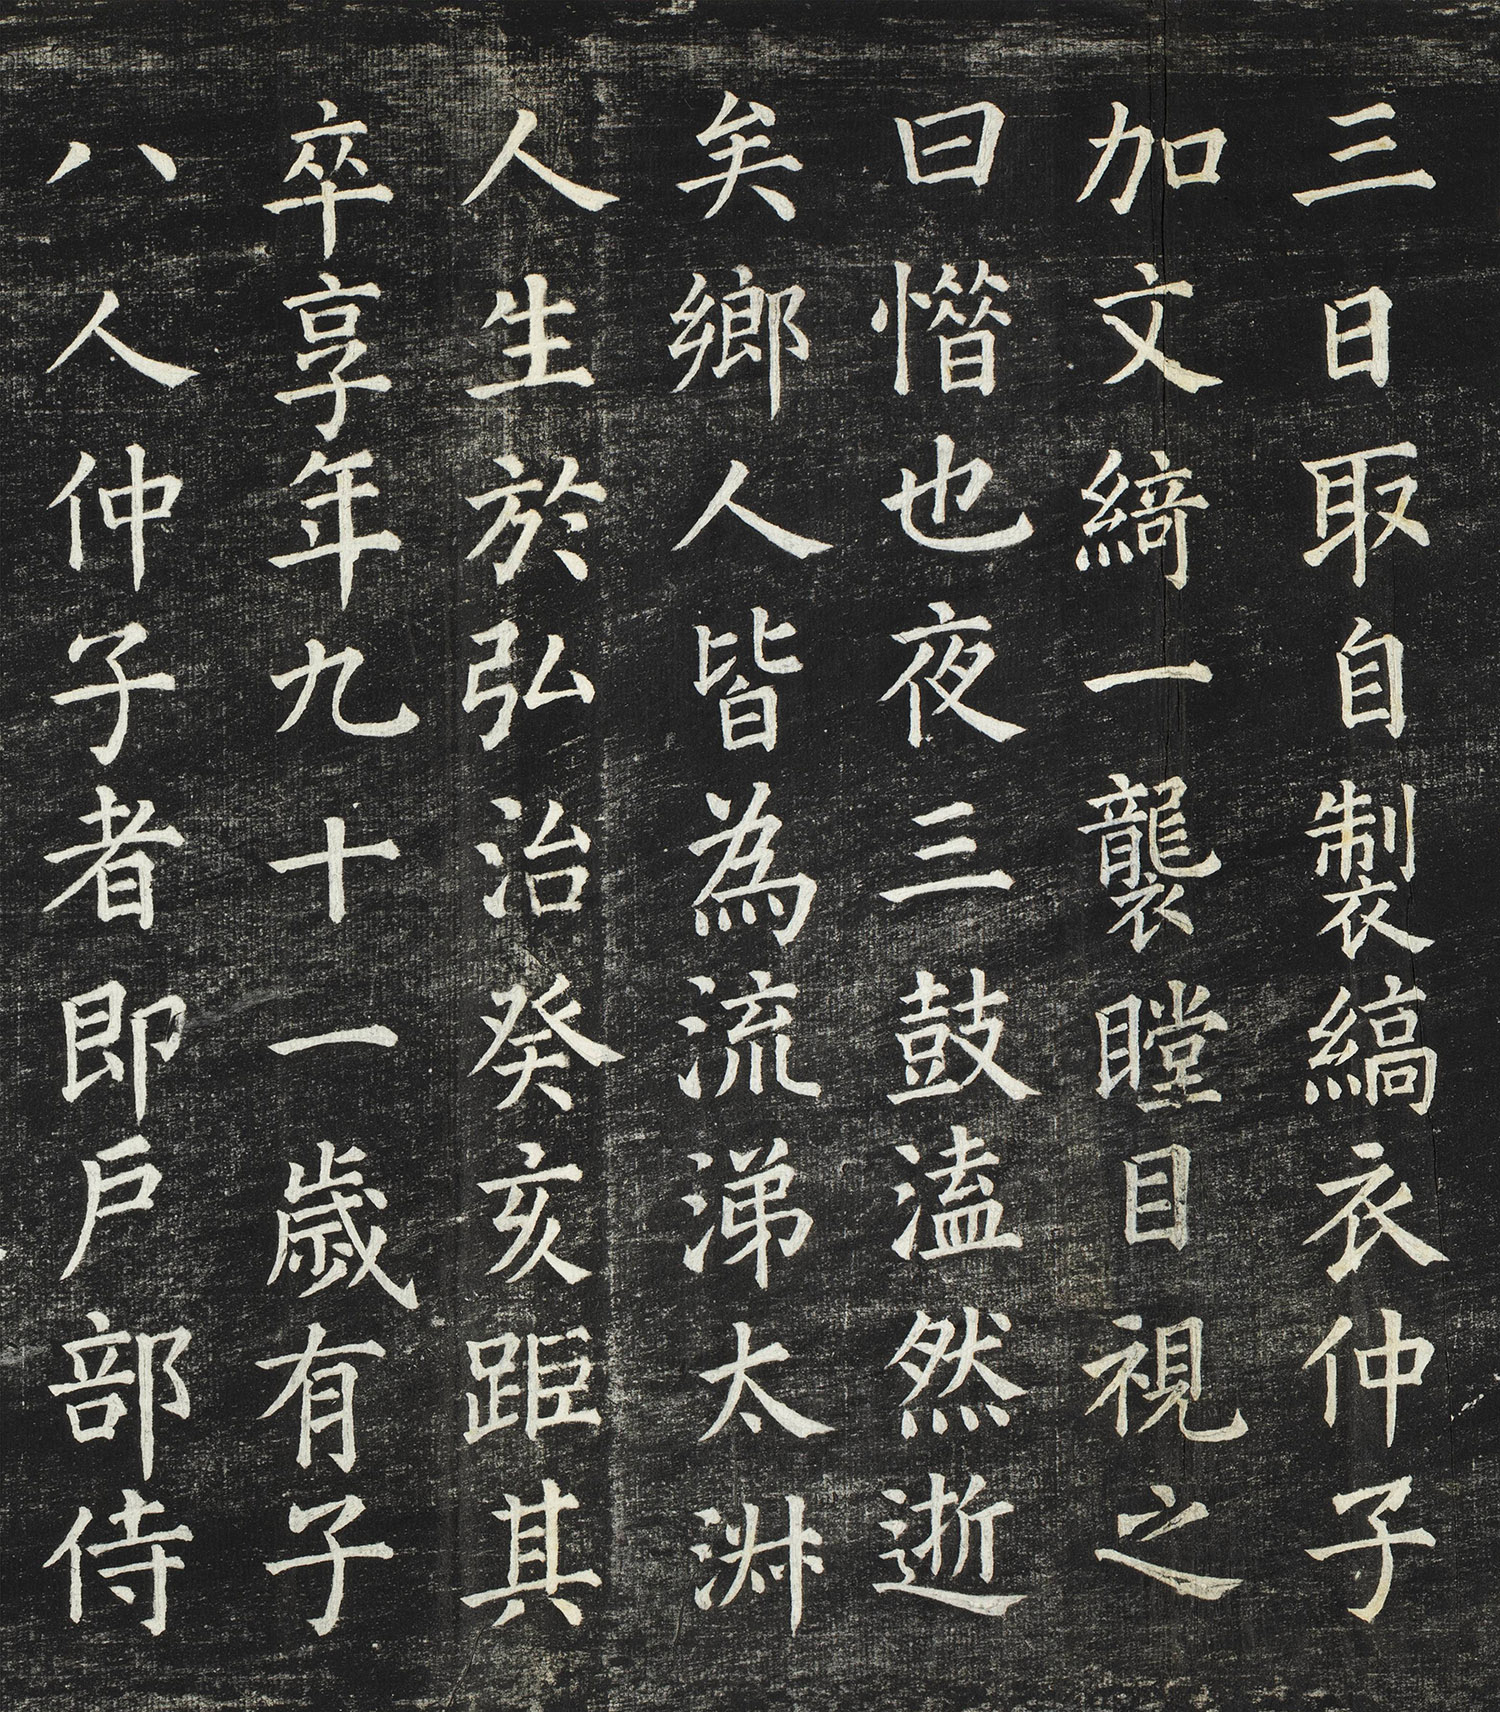 三日取自製縞衣仲子
加文綺一襲瞠目視之
曰憯也夜三鼓溘然逝
矣鄉人皆為流涕太淑
人生於弘治癸亥距其
卒享年九十一歲有子
八人仲子者即戶部侍